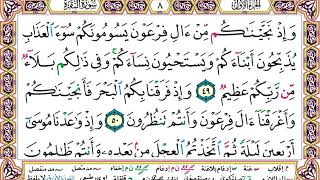 سورة البقرة ٨ الجزء الأول
وَإِذْ نَجَّيْنَٰكُم مِّنْ ءَالِ فِرْعَوْنَ يَسُومُونَكُمْ سُوٓءَ ٱلْعَذَابِ
يُذَبِّحُونَ أَبْنَآءَكُمْ وَيَسْتَحْيُونَ نِسَآءَكُمْ وَفِى ذَٰلِكُم بَلَآءٌ
مِّن رَّبِّكُمْ عَظِيمٌ ٤٩ وَإِذْ فَرَقْنَا بِكُمُ ٱلْبَحْرَ فَأَنجَيْنَٰكُمْ
وَأَغْرَقْنَآ ءَالَ فِرْعَوْنَ وَأَنتُمْ تَنظُرُونَ ٥٠ وَإِذْ وَٰعَدْنَا مُوسَىٰٓ
أَرْبَعِينَ لَيْلَةً ثُمَّ ٱتَّخَذْتُمُ ٱلْعِجْلَ مِنۢ بَعْدِهِۦ وَأَنتُمْ ظَٰلِمُونَ